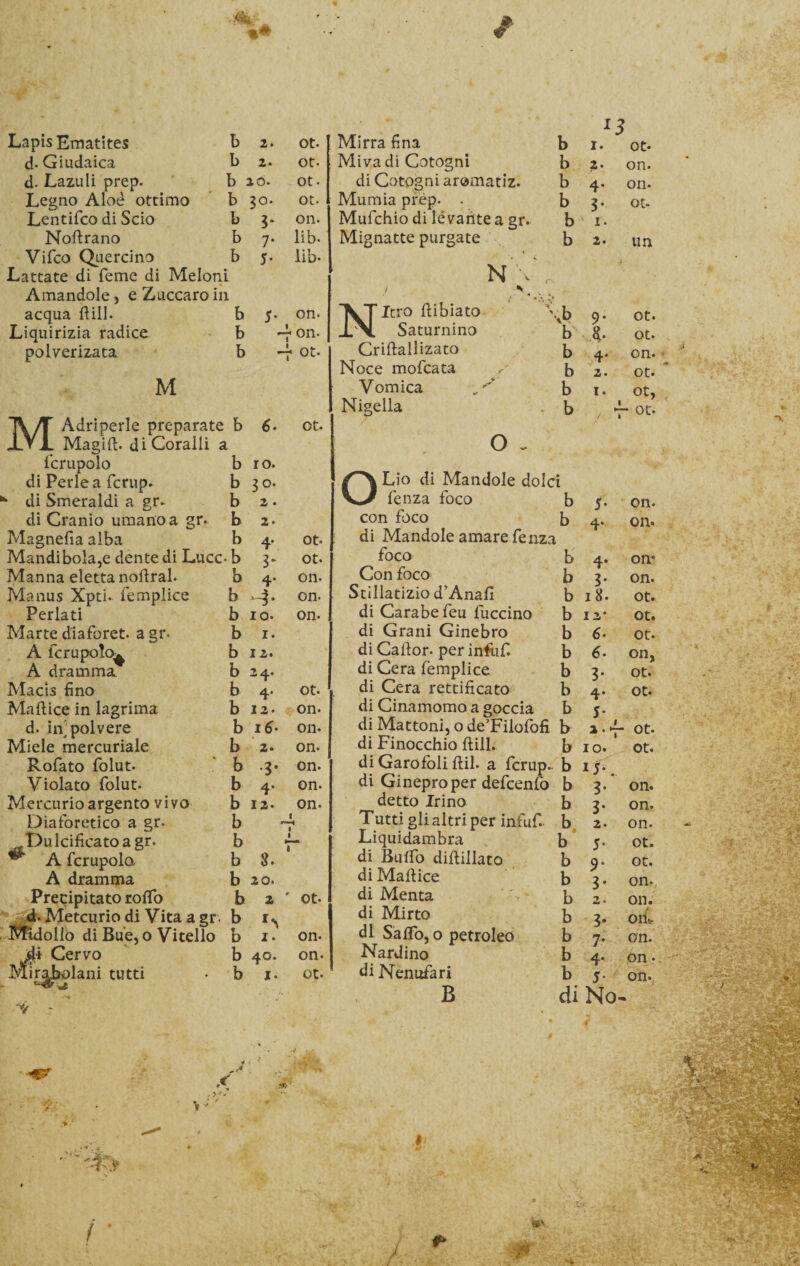 13
Lapis Ematites b 2. ot.
d. Giudaica b 2. ot.
d. Lazuli prep. b 20. ot.
Legno Aloè ottimo b 30. ot.
Lentiſco di Scio b 3. on.
Noſtrano b 7. lib.
Viſco Quercino b 5. lib.
Lattate di ſeme di Meloni
Amandole, e Zuccaro in
acqua ſtill. b 5. on.
Liquirizia radice b ½ on.
polverizata b ½ ot.
M
MAdriperle preparate b 6. ot.
Magiſt. di Coralli a
ſcrupolo b 10.
di Perle a ſcrup. b 30.
di Smeraldi a gr. b 2.
di Cranio umano a gr. b 2.
Magneſia alba b 4. ot.
Mandibola,e dente di Lucc. b 3. ot.
Manna eletta noſtral. b 4. on.
Manus Xpti. ſemplice b 3. on.
Perlati b 10. on.
Marte diaforet. a gr. b 1.
A ſcrupolo b 12.
A dramma b 24.
Macis fino b 4. ot.
Maſtice in lagrima b 12. on.
d. in polvere b 16. on.
Miele mercuriale b 2. on.
Roſato ſolut. b .3. on.
Violato ſolut. b 4. on.
Mercurio argento vivo b 12. on.
Diaforetico a gr. b ½
Dulcificato a gr. b ½
A ſcrupolo b 8.
A dramma b 20.
Precipitato roſſo b 2 ot.
d. Metcurio di Vita a gr. b 1
Midollo di Bue, o Vitello b 1. on.
di Cervo b 40. on.
Mirabolani tutti b 1. ot.
Mirra fina b 1. ot.
Miva di Cotogni b 2. on.
di Cotogni aromatiz. b 4. on.
Mumia prep. b 3. ot.
Muſchio di levante a gr. b 1.
Mignatte purgate b 2. un
N
NItro ſtibiato b 9. ot.
Saturnino b 8. ot.
Criſtallizato b 4. on.
Noce moſcata b 2. ot.
Vomica b 1. ot,
Nigella b ½ ot.
O
OLio di Mandole dolci
ſenza foco b 5. on.
con foco b 4. on.
di Mandole amare ſenza
foco b 4. on.
Con foco b 3. on.
Stillatizio d'Anaſi b 18. ot.
di Carabe ſeu ſuccino b 12. ot.
di Grani Ginebro b 6. ot.
di Caſtor. per infuſ. b 6. on,
di Cera ſemplice b 3. ot.
di Cera rettificato b 4. ot.
di Cinamomo a goccia b 5.
di Mattoni, o de'Filoſofi b 2.½ ot.
di Finocchio ſtill. b 10. ot.
di Garofoli ſtil. a ſcrup. b 15.
di Ginepro per deſcenſo b 3. on.
detto Irino b 3. on.
Tutti gli altri per infuſ. b 2. on.
Liquidambra b 5. ot.
di Buſſo diſtillato b 9. ot.
di Maſtice b 3. on.
di Menta b 2. on.
di Mirto b 3. on.
di Saſſo, o petroleo b 7. on.
Nardino b 4. on.
di Nenufari b 5. on.
B di No-